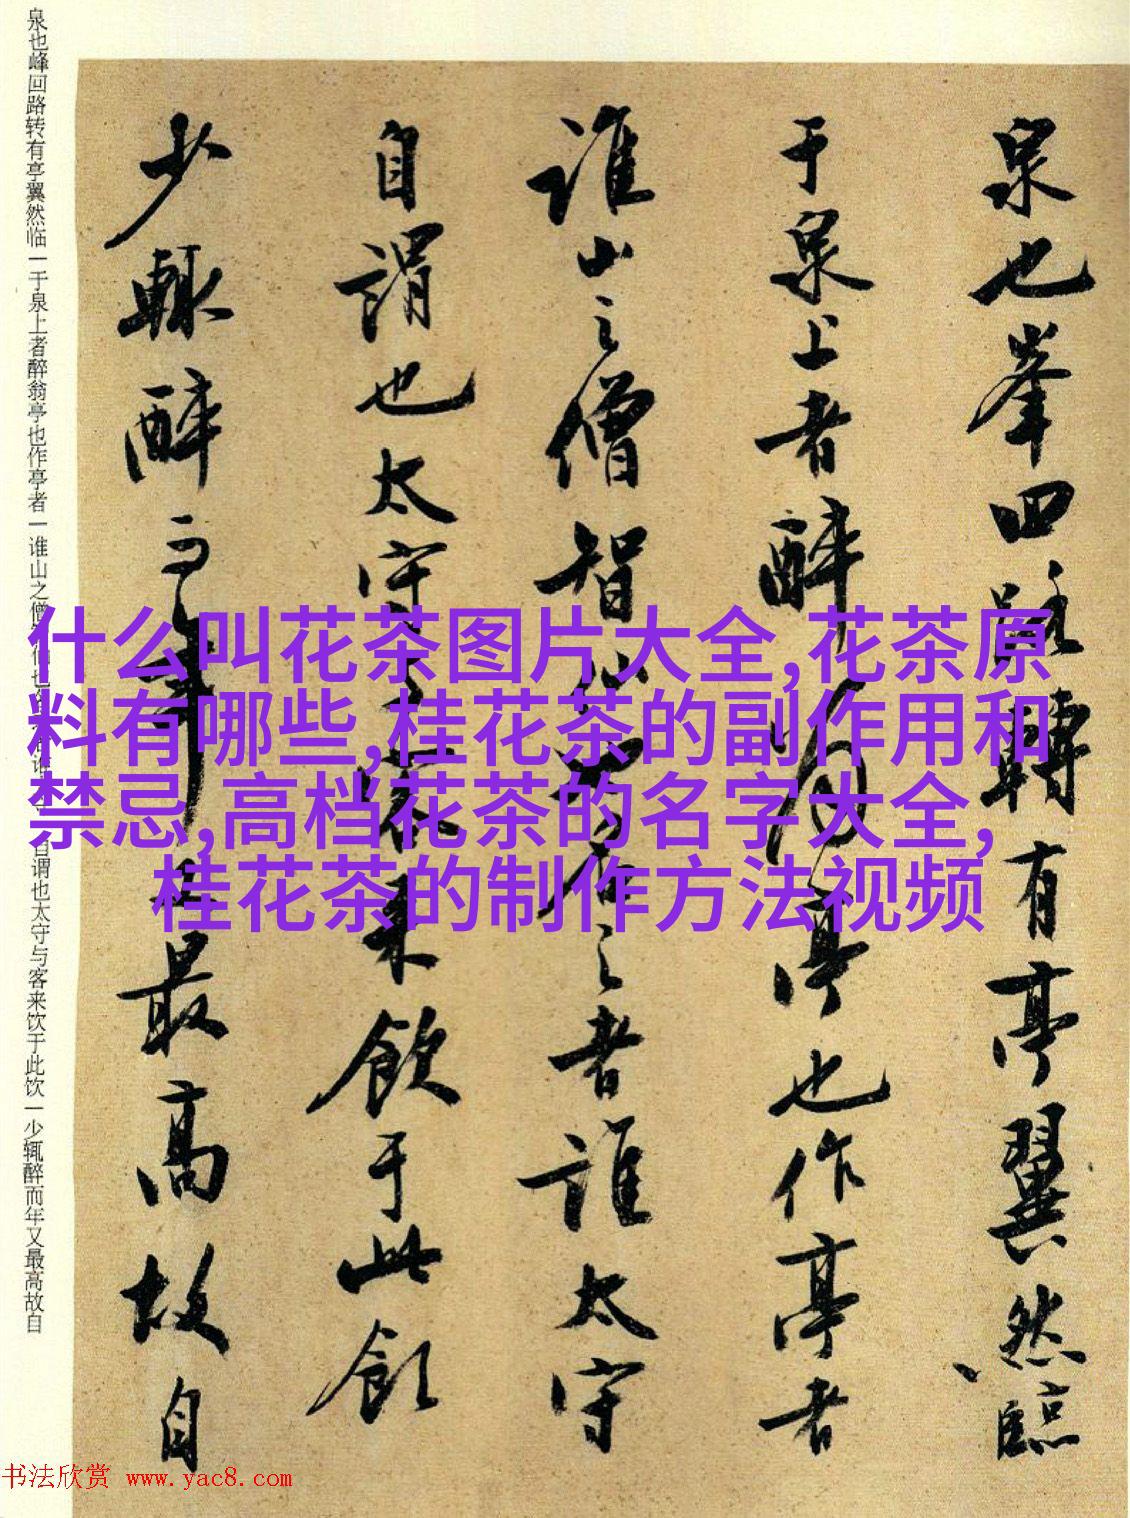 泉也峯回路轉有亭翼然臨
于泉上者醉翁亭也作亭者
誰山之僧智仙也名之者誰太守
自謂也太守与客來飲于此飲
少輒醉而年又最高故自
泉也峰回路转有亭翼然临一于泉上者醉翁亭也作亭者一谁山之僧 自谓也太守与客来饮于此饮一少辄醉而年又最高故自
什么叫花茶图片大全,花茶原
料有哪些,桂花茶的副作用和
禁忌,高档花茶的名字大全,
桂花茶的制作方法视频
书法欣赏 www.yac8.com